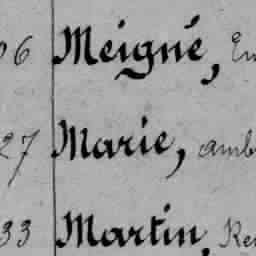 06 Meigné, Em
27 Marie, amb
33 Martin, Re